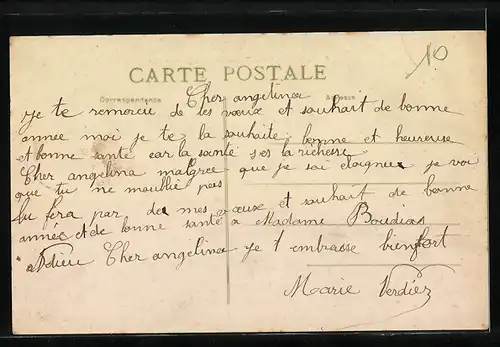 10
CARTE POSTALE
Correspondance
Adresse
Cher angelina
je te remercu de tes vœux et souhait de bonne
annee moi je te la souhaite bonne et heureuse
et bonne santé car la santé s'es la richesse
Cher angelina malgree que je sai éloignee je voi
que tu ne m'oublie pas
tu fera par de mes vœux et souhait de bonne
annee et de bonne santé a Madame Boudias
Adieu Cher angelina je t embrasse bienfort
Marie Verdiez